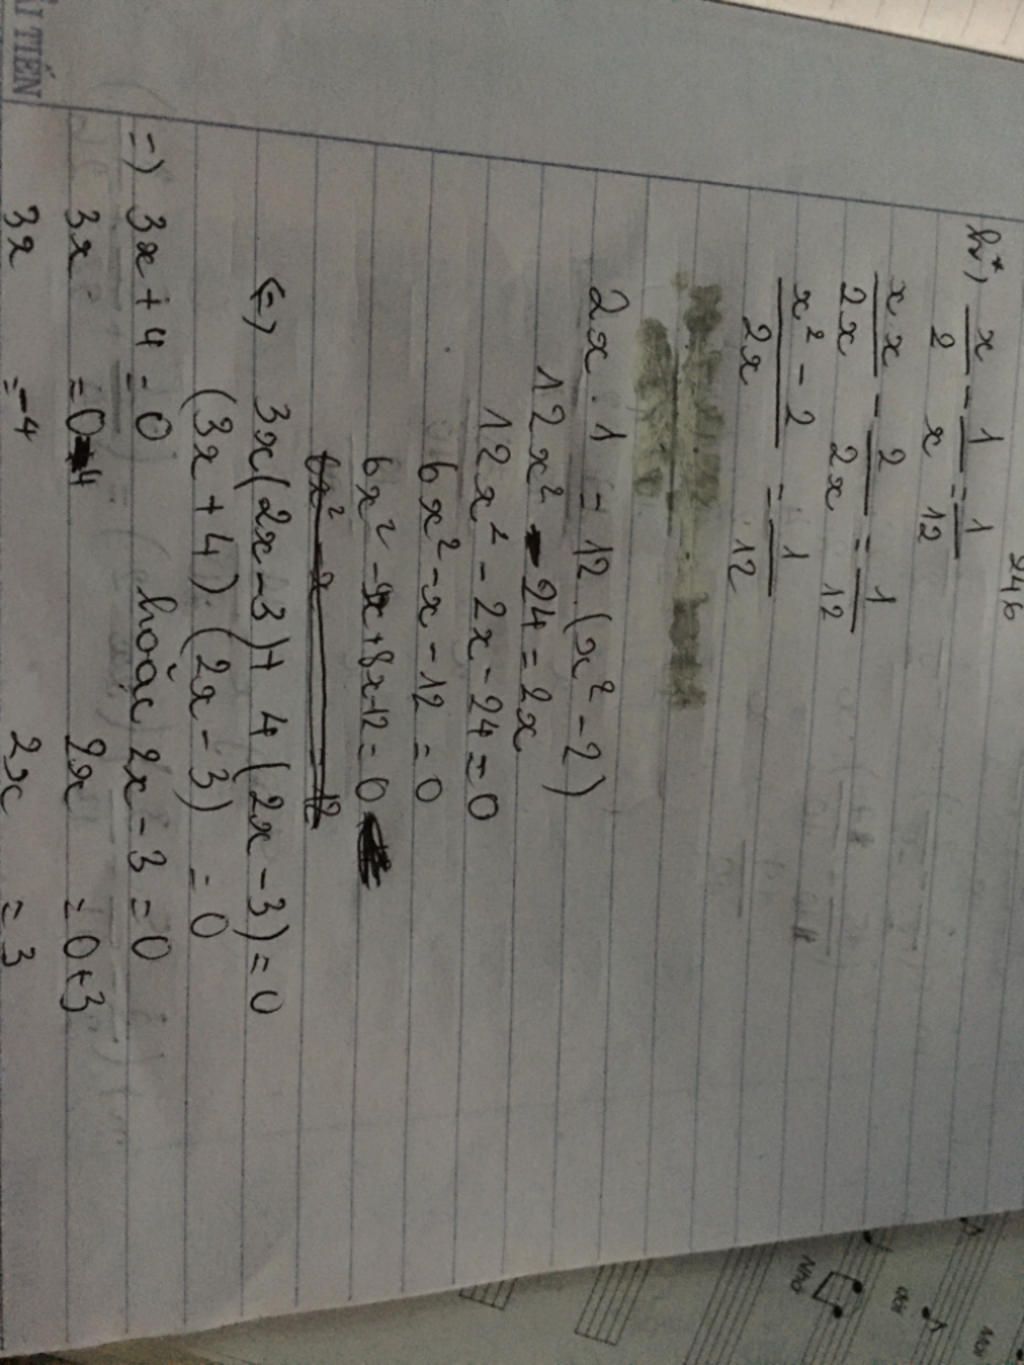 946
b*) x/2 - 1/x = 1/12
x.x/2x - 2/2x = 1/12
x² - 2/2x = 1/12
2x . 1 = 12 . (x² - 2)
12x² - 24 = 2x
12x² - 2x - 24 = 0
6x² - x - 12 = 0
6x² - 9x + 8x - 12 = 0
6x² - x 12
(=) 3x(2x - 3) + 4(2x - 3) = 0
(3x + 4) . (2x - 3) = 0
=) 3x + 4 = 0 hoặc 2x - 3 = 0
3x = 0 - 4 2x = 0 + 3
3x = -4 2x = 3
ẢI TIẾN
Nhỏ